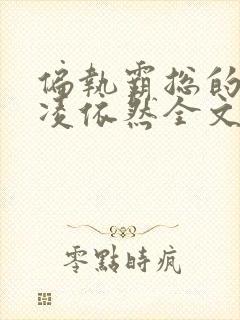 偏執霸总的
凌依然全文
零點時疯